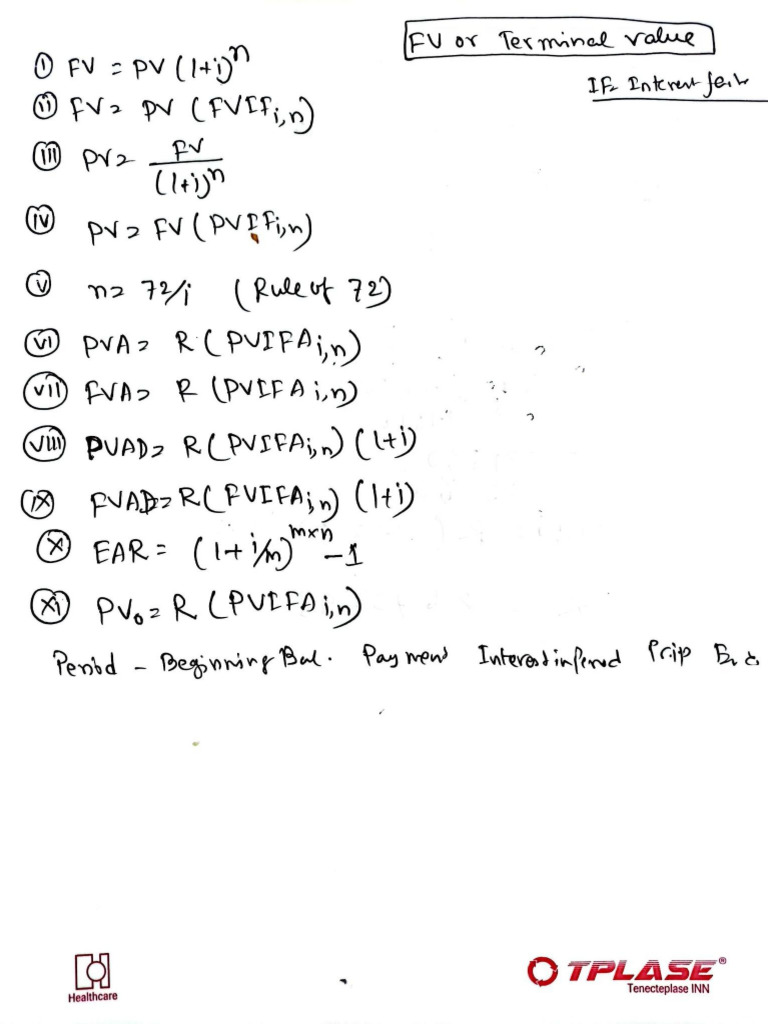 FV or Terminal value
IF = Interest
(i) FV = PV (1+i)^n
(ii) FV = PV (FVIF i,n)
(iii) PV = FV / (1+i)^n
(iv) PV = FV (PVIF i,n)
(v) n = 72/i (Rule of 72)
(vi) PVA = R (PVIFA i,n)
(vii) FVA = R (PVIFA i,n)
(viii) PVAD = R (PVIFA i,n) (1+i)
(ix) FVAD = R (FVIFA i,n) (1+i)
(x) EAR = (1 + i/m)^m×n - 1
(xi) PV₀ = R (PVIFA i,n)
Period - Beginning Bal. Payment Interest
Healthcare
TPLASE®
Tenecteplase INN